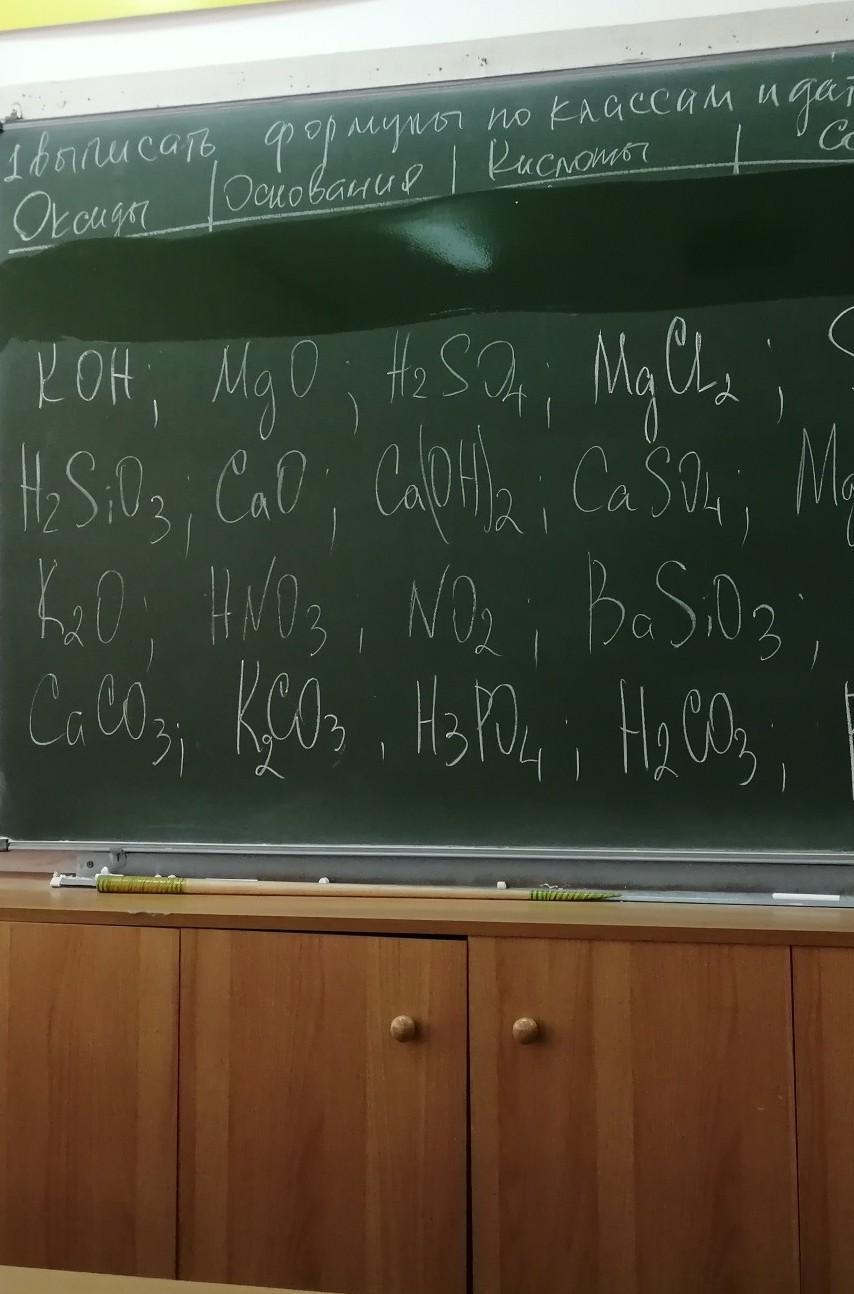 1 выписать формулы по классам и дат
Оксиды | Основания | Кислоты | Со
KOH; MgO; H2SO4; MgCl2;
H2SiO3; CaO; Ca(OH)2; CaSO4; Mg
K2O; HNO3, NO2; BaSiO3;
CaCO3; K2CO3, H3PO4; H2CO3;